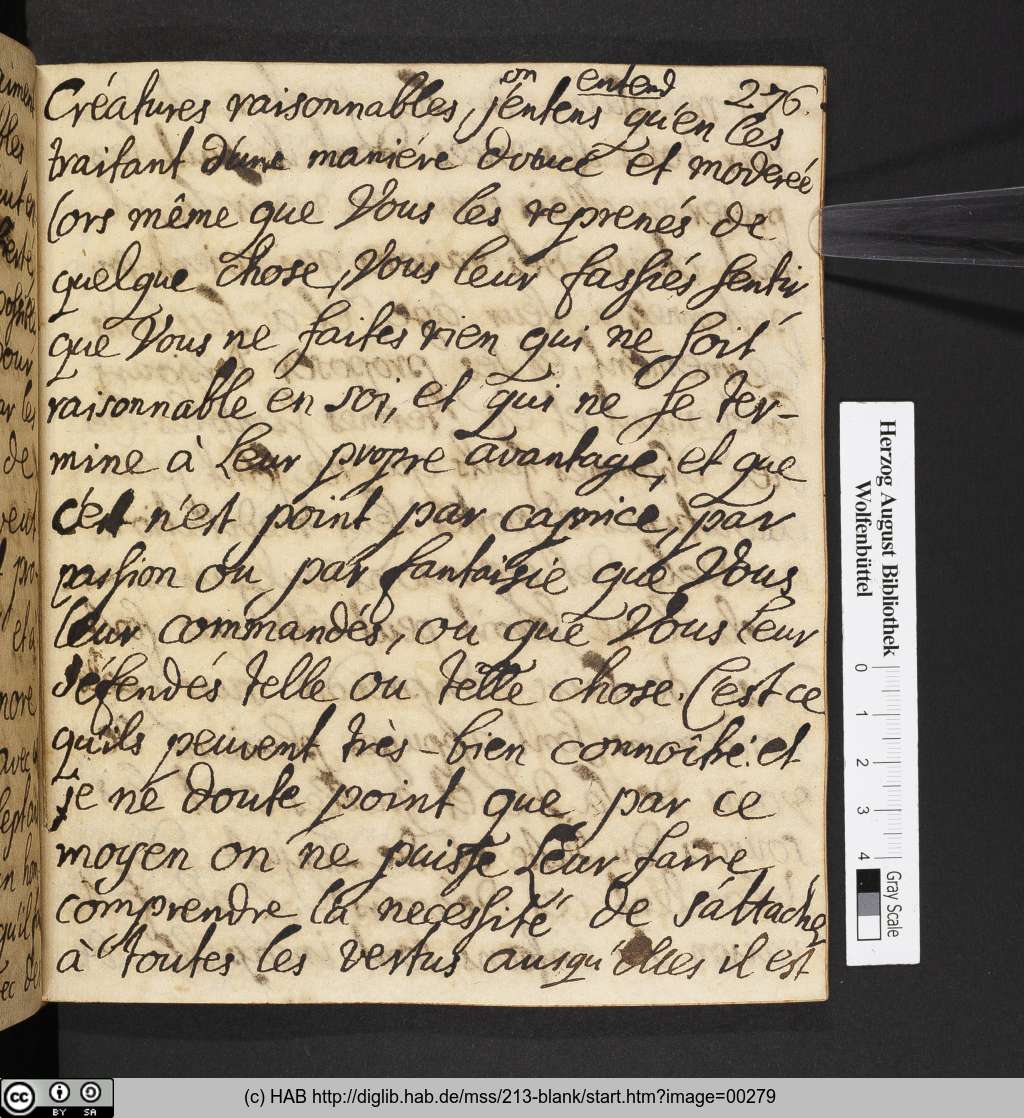 on entend 276.
Créatures raisonnables, j'entens qu'en les
traitant d'une maniére douce et moderée
lors même que Vous les reprenés de
quelque chose, Vous leur fassiés sentir
que Vous ne faites rien qui ne soit
raisonnable en soi, et qui ne se ter-
mine à leur propre avantage, et que
c'est n'est point par caprice, par
passion ou par fantaisie que Vous
leur commandés, ou que Vous leur
défendés telle ou telle chose. C'est ce
qu'ils peuvent très-bien connoître: et
je ne doute point que par ce
moyen on ne puisse leur faire
comprendre la necessité de s'attacher
à toutes les vertus ausqu'elles il est
Herzog August Bibliothek
Wolfenbüttel
0 1 2 3 4
Gray Scale
cc BY SA
(c) HAB http://diglib.hab.de/mss/213-blank/start.htm?image=00279